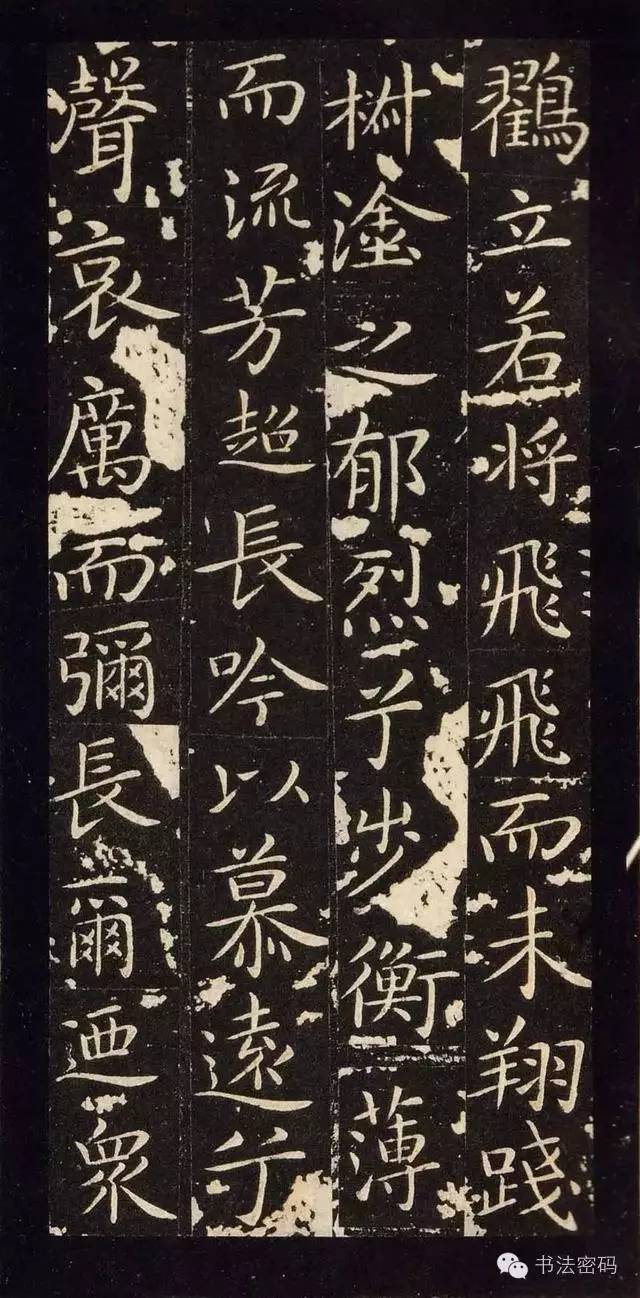 鸖立若将飛飛而未翔踐
椒塗之郁烈兮步衡薄
而流芳超長吟以慕遠兮
聲哀厲而彌長爾迺眾
书法密码